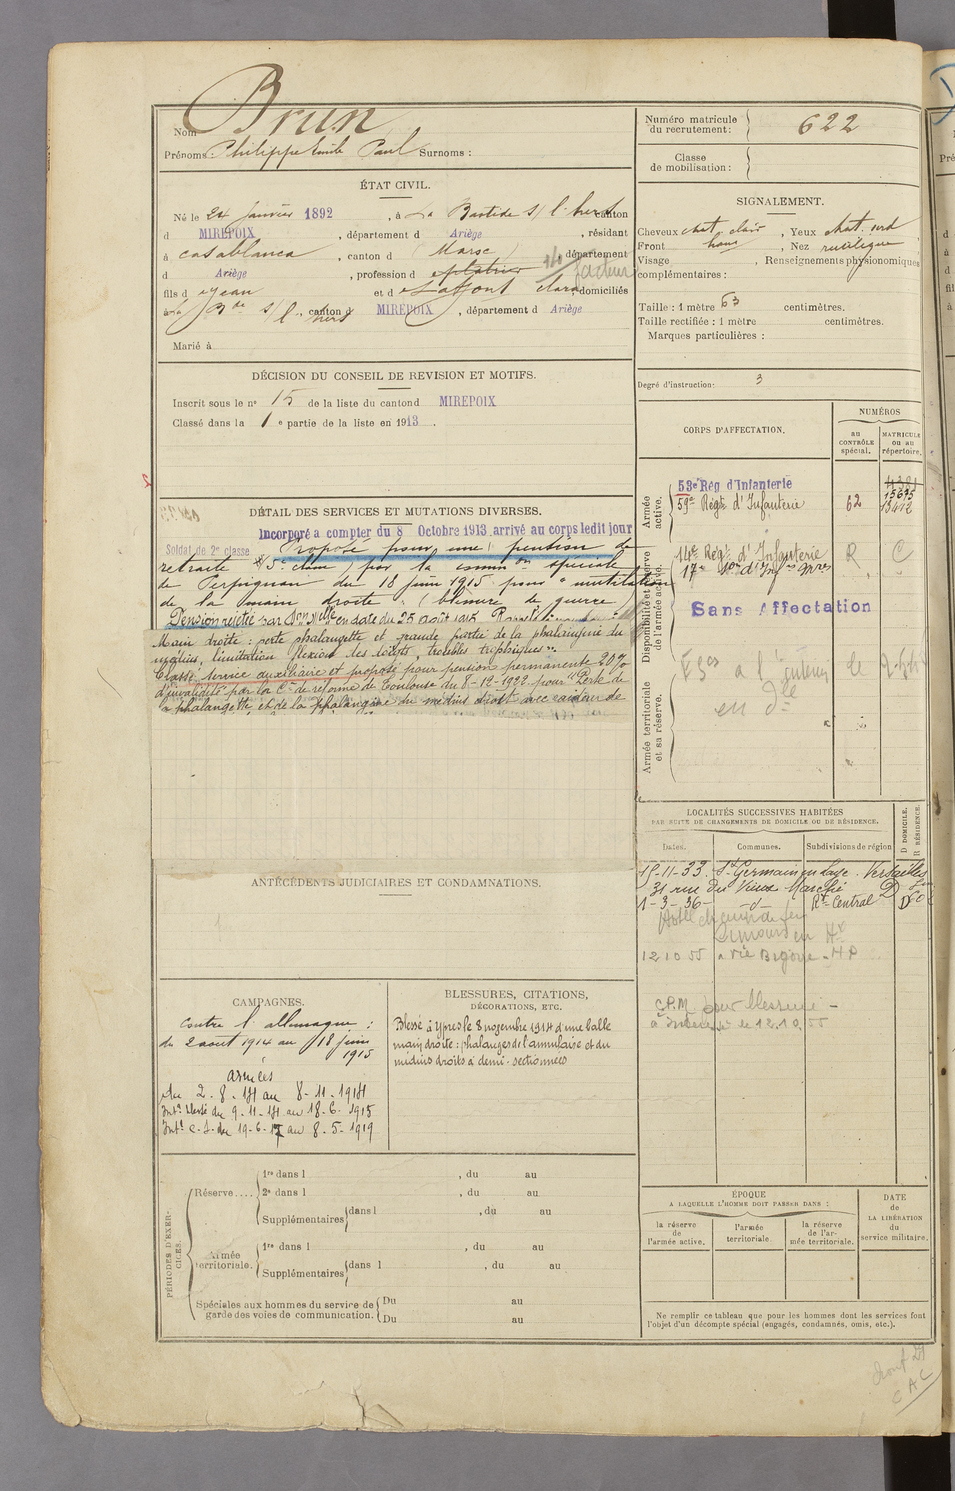 Nom Brun
Prénoms: Philippe Emile Paul Surnoms :
ÉTAT CIVIL.
Né le 24 Janvier 1892, à La Bastide s/ l'hers canton
d MIREPOIX, département d Ariège, résidant
à Casablanca, canton d Maroc, département
d Ariège, profession d platrier facteur
fils d Jean et d Lafont Clara, domiciliés
à la Bde s/ l'hers, canton d MIREPOIX, département d Ariège
Marié à
DÉCISION DU CONSEIL DE REVISION ET MOTIFS.
Inscrit sous le no 15 de la liste du canton d MIREPOIX
Classé dans la 1e partie de la liste en 1913.
DÉTAIL DES SERVICES ET MUTATIONS DIVERSES.
Incorporé a compter du 8 Octobre 1913 arrivé au corps ledit jour
Soldat de 2e classe Proposé pour une pension de
retraite (5e clas) par la comm on spéciale
de Perpignan du 18 juin 1915 pour "mutilation
de la main droite" (blessure de guerre)
Pension rejetée par en date du 25 août 1915
Main droite : perte phalangette et grande partie de la phalangine du
médius, limitation flexion des doigts, troubles trophiques".
Classé service auxiliaire et proposé pour pension permanente 20 %
d'invalidité par la Con de réforme de Toulouse du 8-12-1922 pour "Perte de
la phalangette et de la phalangine du médius droit avec raideur de
ANTÉCÉDENTS JUDICIAIRES ET CONDAMNATIONS.
CAMPAGNES.
Contre l'allemagne :
du 2 aout 1914 au 18 juin
1915
armées
du 2-8-14 au 8-11-1914
Intr blessé du 9-11-14 au 18-6-1915
Intr C.S. du 19-6-17 au 8-5-1919
BLESSURES, CITATIONS,
DÉCORATIONS, ETC.
Blessé à Ypres le 8 novembre 1914 d'une balle
main droite : phalanges de l'annulaire et du
médius droits à demi-sectionnées
PÉRIODES D'EXERCICES.
Réserve.... 1re dans l , du au
2e dans l , du au
Supplémentaires dans l , du au
Armée territoriale. 1re dans l , du au
Supplémentaires dans l , du au
Spéciales aux hommes du service de garde des voies de communication. Du au
Du au
Numéro matricule du recrutement: 622
Classe de mobilisation :
SIGNALEMENT.
Cheveux chat. clair, Yeux chat. verd,
Front haut, Nez rectiligne,
Visage , Renseignements physionomiques
complémentaires :
Taille : 1 mètre 63 centimètres.
Taille rectifiée : 1 mètre centimètres.
Marques particulières :
Degré d'instruction: 3
CORPS D'AFFECTATION.
NUMÉROS
au CONTRÔLE spécial.
MATRICULE ou au répertoire.
Armée active.
53e Rég d'Infanterie
59e Régt d'Infanterie 62 15695
13412
Disponibilité et réserve de l'armée active.
14e Régt d'Infanterie R C
Sans Affectation
Armée territoriale et sa réserve.
LOCALITÉS SUCCESSIVES HABITÉES
PAR SUITE DE CHANGEMENTS DE DOMICILE OU DE RÉSIDENCE.
Dates. Communes. Subdivisions de région
D DOMICILE. R RÉSIDENCE.
15-11-33 St Germain en Laye. Versailles
31 rue du Vieux Marché D
1-3-36 -d- Rt Central D
Hotel chemin de fer
12 10 55
C.P.M. pour blessure -
12.10.55
ÉPOQUE
A LAQUELLE L'HOMME DOIT PASSER DANS :
la réserve de l'armée active.
l'armée territoriale.
la réserve de l'armée territoriale.
DATE de LA LIBÉRATION du service militaire.
Ne remplir ce tableau que pour les hommes dont les services font
l'objet d'un décompte spécial (engagés, condamnés, omis, etc.).